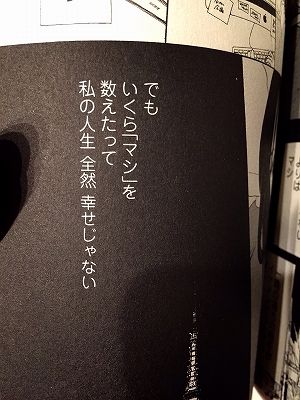 でも
いくら「マシ」を
数えたって
私の人生 全然 幸せじゃない